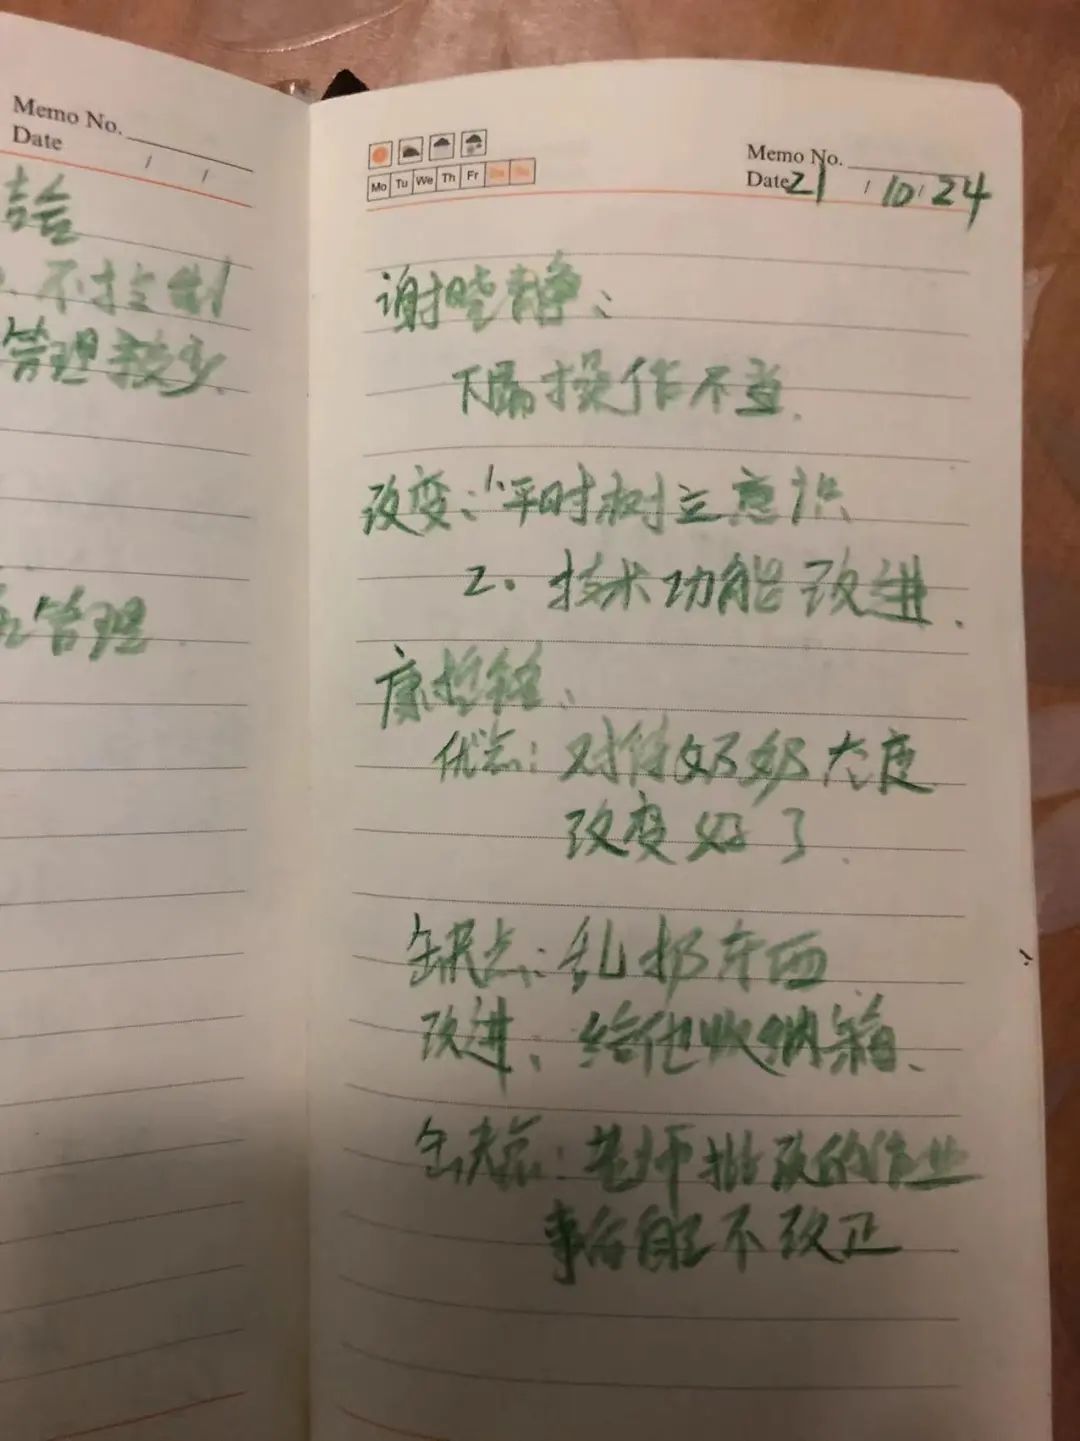 Memo No.
Date / /
不控制
管理较少
管理
Mo Tu We Th Fr Sa Su
Memo No.
Date 21 / 10 / 24
谢晓静：
操作不当.
改变：1、平时树立意识
2、技术功能改进.
康哲铭、
优点：对待奶奶态度
改变好了.
缺点：乱扔东西
改进、给他收纳箱、
缺点：老师批改的作业
事后自己不改正